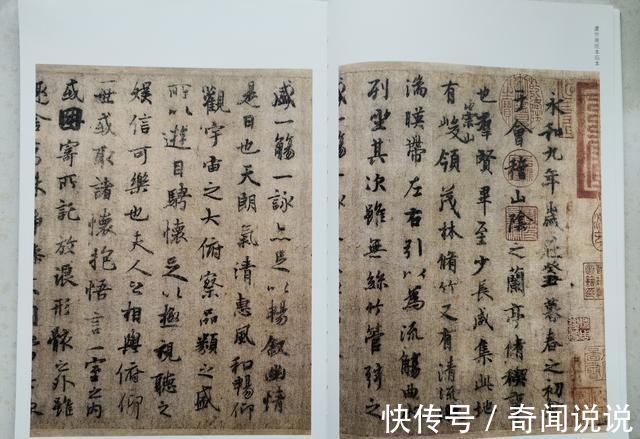 永和九年歲在癸丑暮春之初
于會稽山陰之蘭亭脩稧事
也群賢畢至少長咸集此地
有崇山峻領茂林脩竹又有清流
湍暎帶左右引以為流觴曲
列坐其次雖無絲竹管弦之
盛一觴一詠亦足以暢敘幽情
是日也天朗氣清惠風和暢仰
觀宇宙之大俯察品類之盛
所以遊目騁懷足以極視聽之
娛信可樂也夫人之相與俯仰
一世或取諸懷抱悟言一室之內
或因寄所託放浪形骸之外雖
快传号 / 奇闻说说